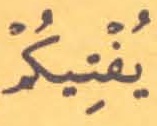 يُفْتِيكُمْ